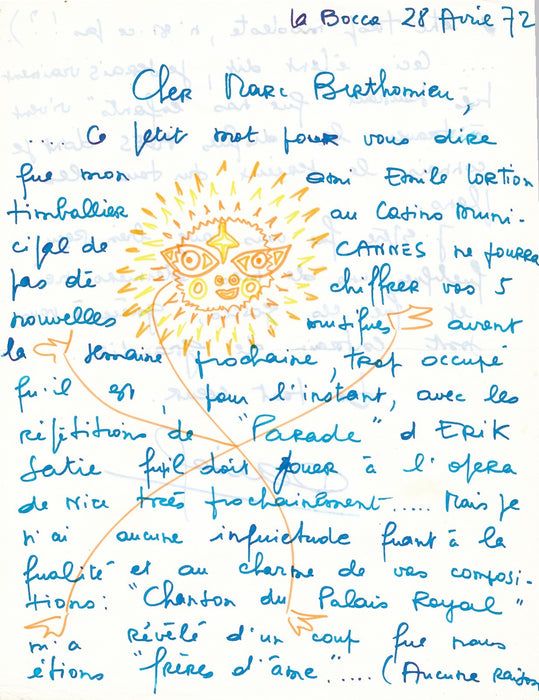 La Bocca 28 Avril 72
Cher Marc Berthomieu,
.... Ce petit mot pour vous dire
que mon ami Emile LORTION
timballier au Casino Muni-
cipal de CANNES ne pourra
pas dé chiffrer vos 5
nouvelles musiques avant
la semaine prochaine, trop occupé
qu'il est, pour l'instant, avec les
répétitions de "Parade" d'ERIK
Satie qu'il doit jouer à l'opéra
de Nice très prochainement..... Mais je
n'ai aucune inquietude quant à la
qualité et au charme de vos composi-
tions: "Chanson du Palais Royal"
m'a révélé d'un coup que nous
étions "frères d'âme"..... (Aucune raison